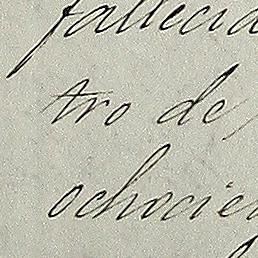 fallecid
tro de
ochocie